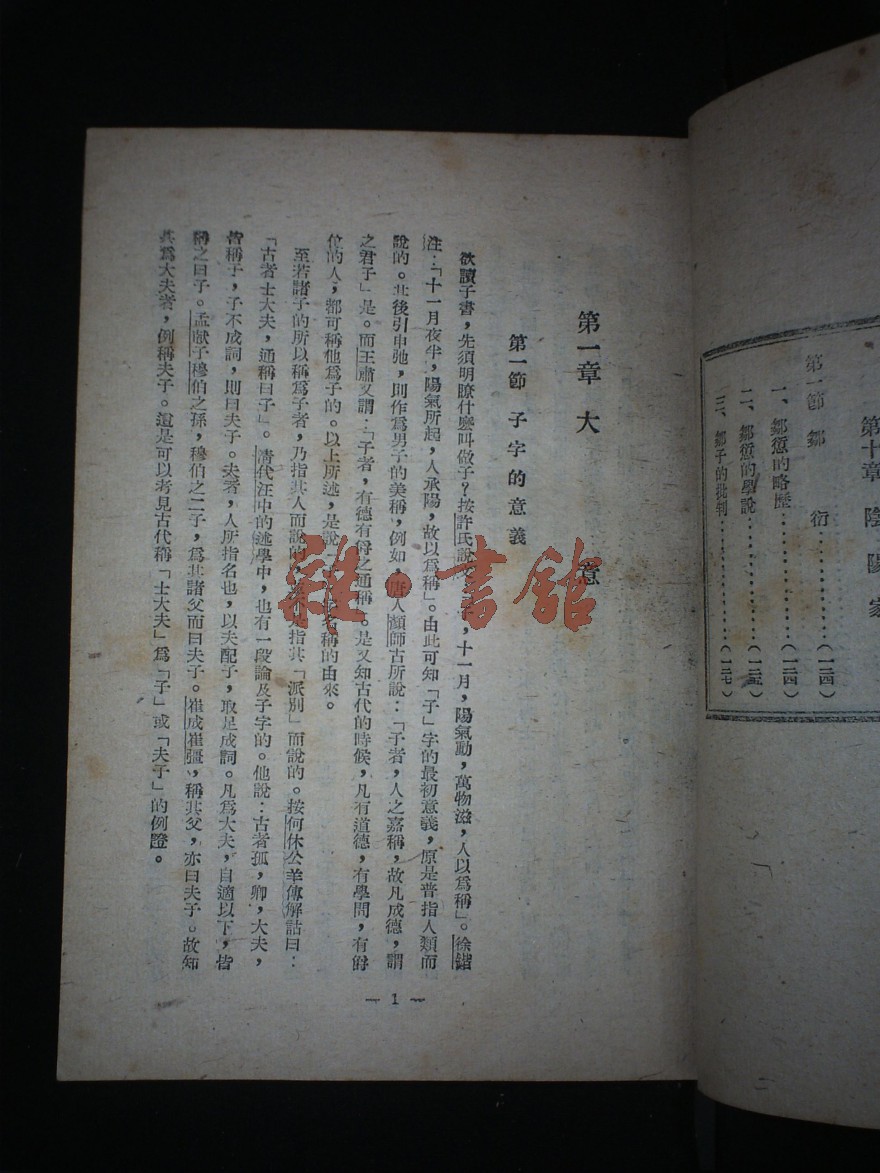 第十章 陰陽家
第一節 鄒 衍…………(一二四)
一、鄒衍的略歷…………(一二四)
二、鄒衍的學說…………(一二五)
三、鄒子的批判…………(一二七)
二
第一章 大 意
第一節 子字的意義
欲讀子書，先須明瞭什麼叫做子？按許氏說文，十一月，陽氣動，萬物滋，人以爲稱」。徐鍇
注：「十一月夜半，陽氣所起，人承陽，故以爲稱」。由此可知「子」字的最初意義，原是普指人類而
說的。其後引申弛，則作爲男子的美稱，例如，唐人顏師古所說：「子者，人之嘉稱，故凡成德，謂
之君子」是。而王肅又謂：「子者，有德有爵之通稱」。是又知古代的時候，凡有道德，有學問，有爵
位的人，都可稱他爲子的。以上所述，是說「名稱的由來。
至若諸子的所以稱爲子者，乃指其人而說的，是指其「派別」而說的。按何休公羊傳解詁曰：
「古者士大夫，通稱曰子」。清代汪中的述學中，也有一段論及子字的。他說：古者孤，卿，大夫，
皆稱子，子不成詞，則曰夫子。夫者，人所指名也，以夫配子，取足成詞。凡爲大夫，自適以下，皆
稱之曰子。孟献子穆伯之孫，穆伯之二子，爲其諸父而曰夫子。崔成崔彊，稱其父，亦曰夫子。故知
其爲大夫者，例稱夫子。這是可以考見古代稱「士大夫」爲「子」或「夫子」的例證。
— 1 —
雜·書館